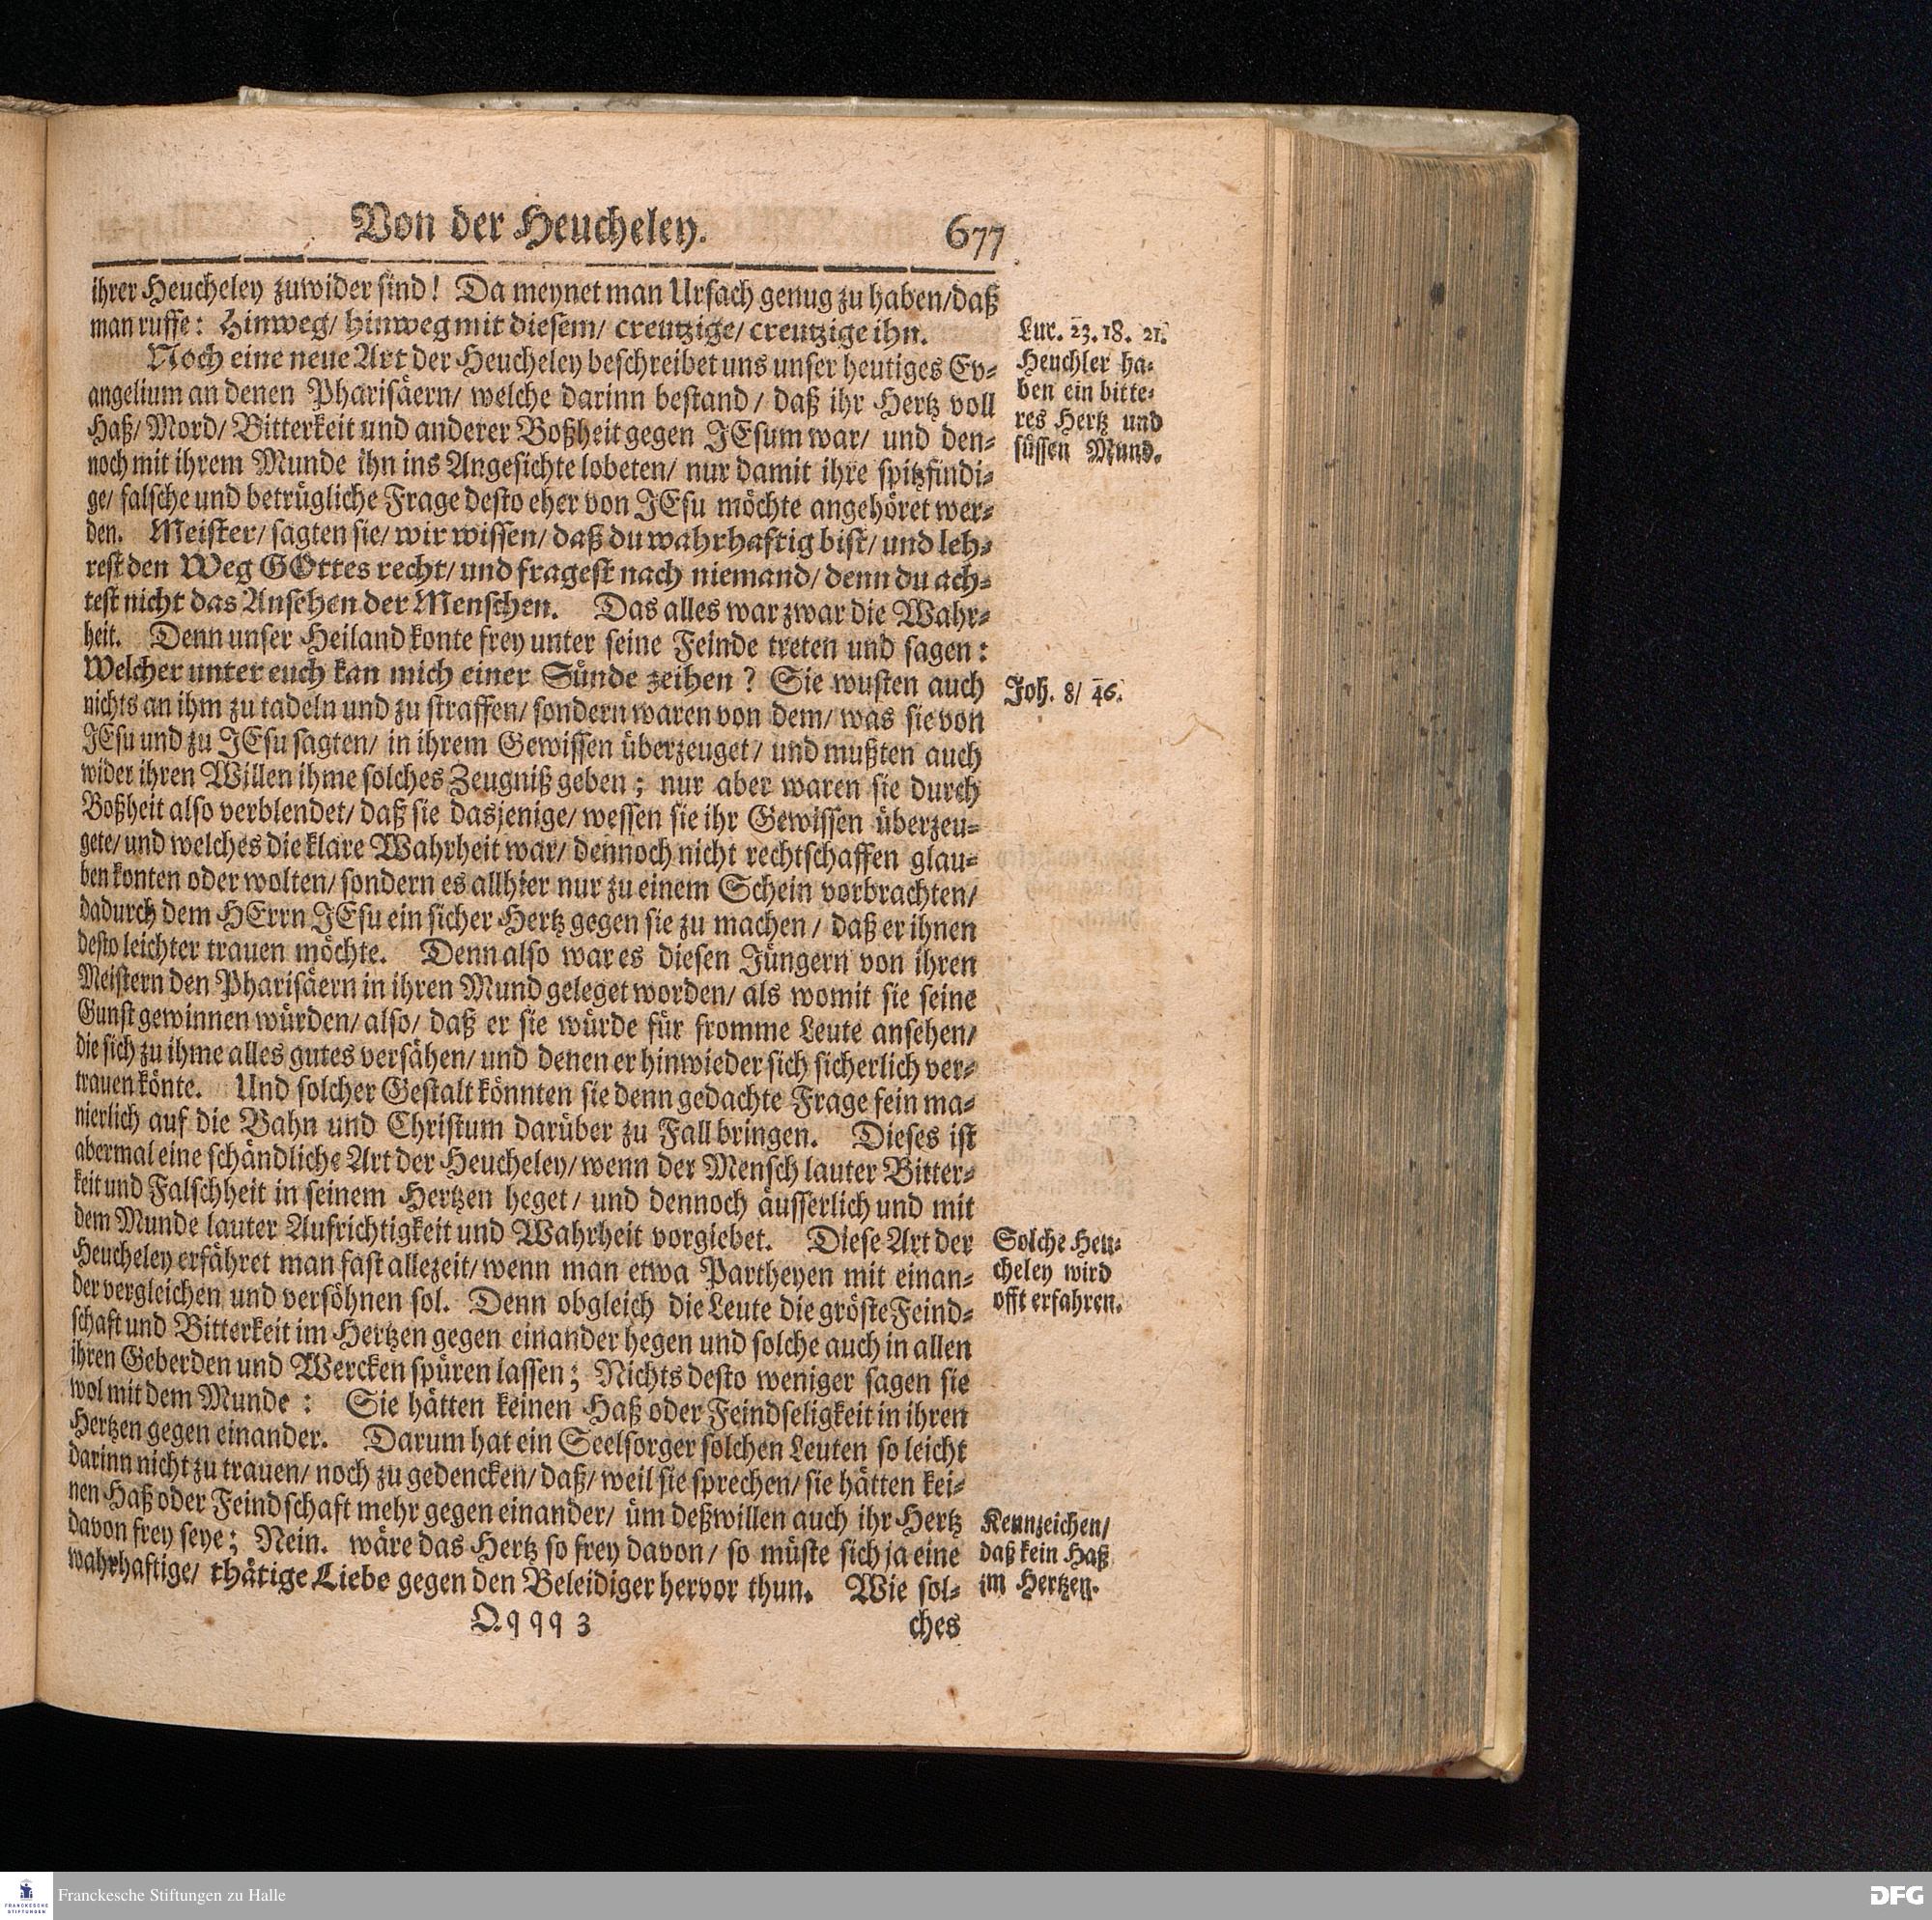 Von der Heucheley. 677
ihrer Heucheley zuwider sind! Da meynet man Ursach genug zu haben/daß
man ruffe: Hinweg/ hinweg mit diesem/ creutzige/ creutzige ihn.
Noch eine neue Art der Heucheley beschreibet uns unser heutiges Ev-
angelium an denen Pharisäern/ welche darinn bestand/ daß ihr Hertz voll
Haß/ Mord/ Bitterkeit und anderer Boßheit gegen JEsum war/ und den-
noch mit ihrem Munde ihn ins Angesichte lobeten/ nur damit ihre spitzfindi-
ge/ falsche und betrügliche Frage desto eher von JEsu möchte angehöret wer-
den. Meister/ sagten sie/ wir wissen/ daß du wahrhaftig bist/ und leh-
rest den Weg GOttes recht/ und fragest nach niemand/ denn du ach-
test nicht das Ansehen der Menschen. Das alles war zwar die Wahr-
heit. Denn unser Heiland konte frey unter seine Feinde treten und sagen:
Welcher unter euch kan mich einer Sünde zeihen? Sie wusten auch
nichts an ihm zu tadeln und zu straffen/ sondern waren von dem/ was sie von
JEsu und zu JEsu sagten/ in ihrem Gewissen überzeuget/ und mußten auch
wider ihren Willen ihme solches Zeugniß geben; nur aber waren sie durch
Boßheit also verblendet/ daß sie dasjenige/ wessen sie ihr Gewissen überzeu-
gete/ und welches die klare Wahrheit war/ dennoch nicht rechtschaffen glau-
ben konten oder wolten/ sondern es allhier nur zu einem Schein vorbrachten/
dadurch dem HErrn JEsu ein sicher Hertz gegen sie zu machen/ daß er ihnen
desto leichter trauen möchte. Denn also war es diesen Jüngern von ihren
Meistern den Pharisäern in ihren Mund geleget worden/ als womit sie seine
Gunst gewinnen würden/ also/ daß er sie würde für fromme Leute ansehen/
die sich zu ihme alles gutes versähen/ und denen er hinwieder sich sicherlich ver-
trauen könte. Und solcher Gestalt könnten sie denn gedachte Frage fein ma-
nierlich auf die Bahn und Christum darüber zu Fall bringen. Dieses ist
abermal eine schändliche Art der Heucheley/ wenn der Mensch lauter Bitter-
keit und Falschheit in seinem Hertzen heget/ und dennoch äusserlich und mit
dem Munde lauter Aufrichtigkeit und Wahrheit vorgiebet. Diese Art der
Heucheley erfähret man fast allezeit/ wenn man etwa Partheyen mit einan-
der vergleichen und versöhnen sol. Denn obgleich die Leute die gröste Feind-
schaft und Bitterkeit im Hertzen gegen einander hegen und solche auch in allen
ihren Geberden und Wercken spüren lassen; Nichts desto weniger sagen sie
wol mit dem Munde: Sie hätten keinen Haß oder Feindseligkeit in ihren
Hertzen gegen einander. Darum hat ein Seelsorger solchen Leuten so leicht
darinn nicht zu trauen/ noch zu gedencken/ daß/ weil sie sprechen/ sie hätten kei-
nen Haß oder Feindschaft mehr gegen einander/ üm deßwillen auch ihr Hertz
davon frey seye; Nein. wäre das Hertz so frey davon/ so müste sich ja eine
wahrhaftige/ thätige Liebe gegen den Beleidiger hervor thun. Wie sol-
Qqqq 3 ches
Luc. 23. 18. 21.
Heuchler ha-
ben ein bitte-
res Hertz und
süssen Mund.
Joh. 8/ 46.
Solche Heu-
cheley wird
offt erfahren.
Kennzeichen/
daß kein Haß
im Hertzen.
Franckesche Stiftungen zu Halle
FRANCKESCHE
STIFTUNGEN
DFG